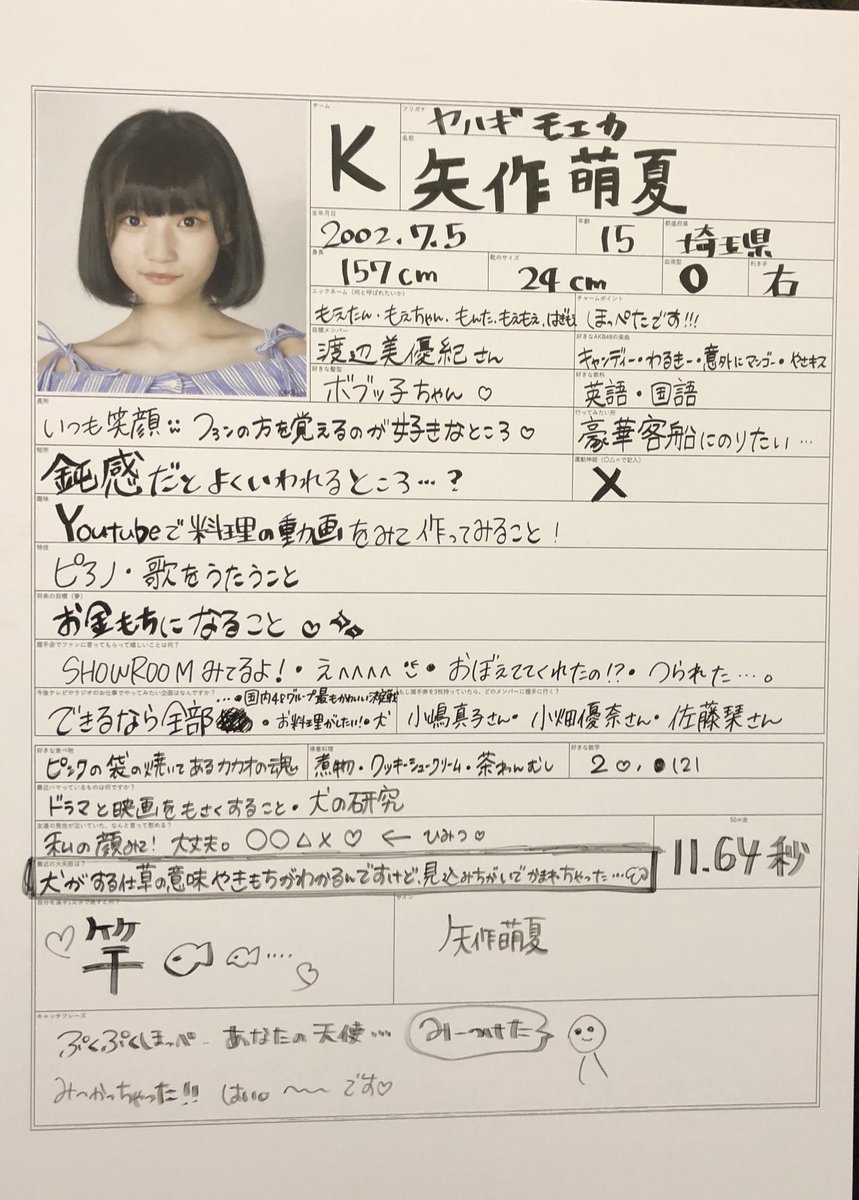 チーム
K
フリガナ
ヤハギ モエカ
名前
矢作 萌夏
生年月日
2002.7.5
年齢
15
都道府県
埼玉県
身長
157cm
靴のサイズ
24cm
血液型
O
利き手
右
ニックネーム(何と呼ばれたいか)
もえたん・もえちゃん・もんた・もえもえ、はぎもえ
チャームポイント
ほっぺたです!!!
目標メンバー
渡辺美優紀さん
好きなAKB48の楽曲
キャンディー・わるきー・意外にマンゴー・やさキス
好きな髪型
ボブッ子ちゃん♡
好きな教科
英語・国語
長所
いつも笑顔 ファンの方を覚えるのが好きなところ♡
行ってみたい所
豪華客船にのりたい…
短所
鈍感だとよくいわれるところ…?
運動神経(○△×で記入)
×
趣味
Youtubeで料理の動画をみて作ってみること!
特技
ピアノ・歌をうたうこと
将来の目標(夢)
お金もちになること♡
握手会でファンに言ってもらって嬉しいことは何?
SHOWROOMみてるよ!・えへへへへ・おぼえててくれたの!?・つられた…。
今後テレビやラジオのお仕事でやってみたい企画はなんですか?
…・国内48グループ最もかわいい決定戦
できるなら全部 ・お料理がしたい!・犬
もし握手券を3枚持っていたら、どのメンバーに握手に行く?
小嶋真子さん・小畑優奈さん・佐藤栞さん
好きな食べ物
ピンクの袋の焼いてあるカカオの魂
得意料理
煮物・クッキーシュークリーム・茶わんむし
好きな数字
2♡・121
最近ハマっているものは何ですか?
ドラマと映画をもさくすること・犬の研究
友達の男性が泣いていた、なんと言って慰める?
私の顔みて!大丈夫。○○△×♡←ひみつ♡
50m走
11.64秒
最近の大失敗は?
犬がする仕草の意味やきもちがわかるんですけど、見込みちがいでかまれちゃった…
自分を漢字1文字で表すと何?
♡竿 ….♡
サイン
矢作萌夏
キャッチフレーズ
ぷくぷくほっぺ あなたの天使… みーつけた
みつかっちゃった!! はい。〜〜です♡